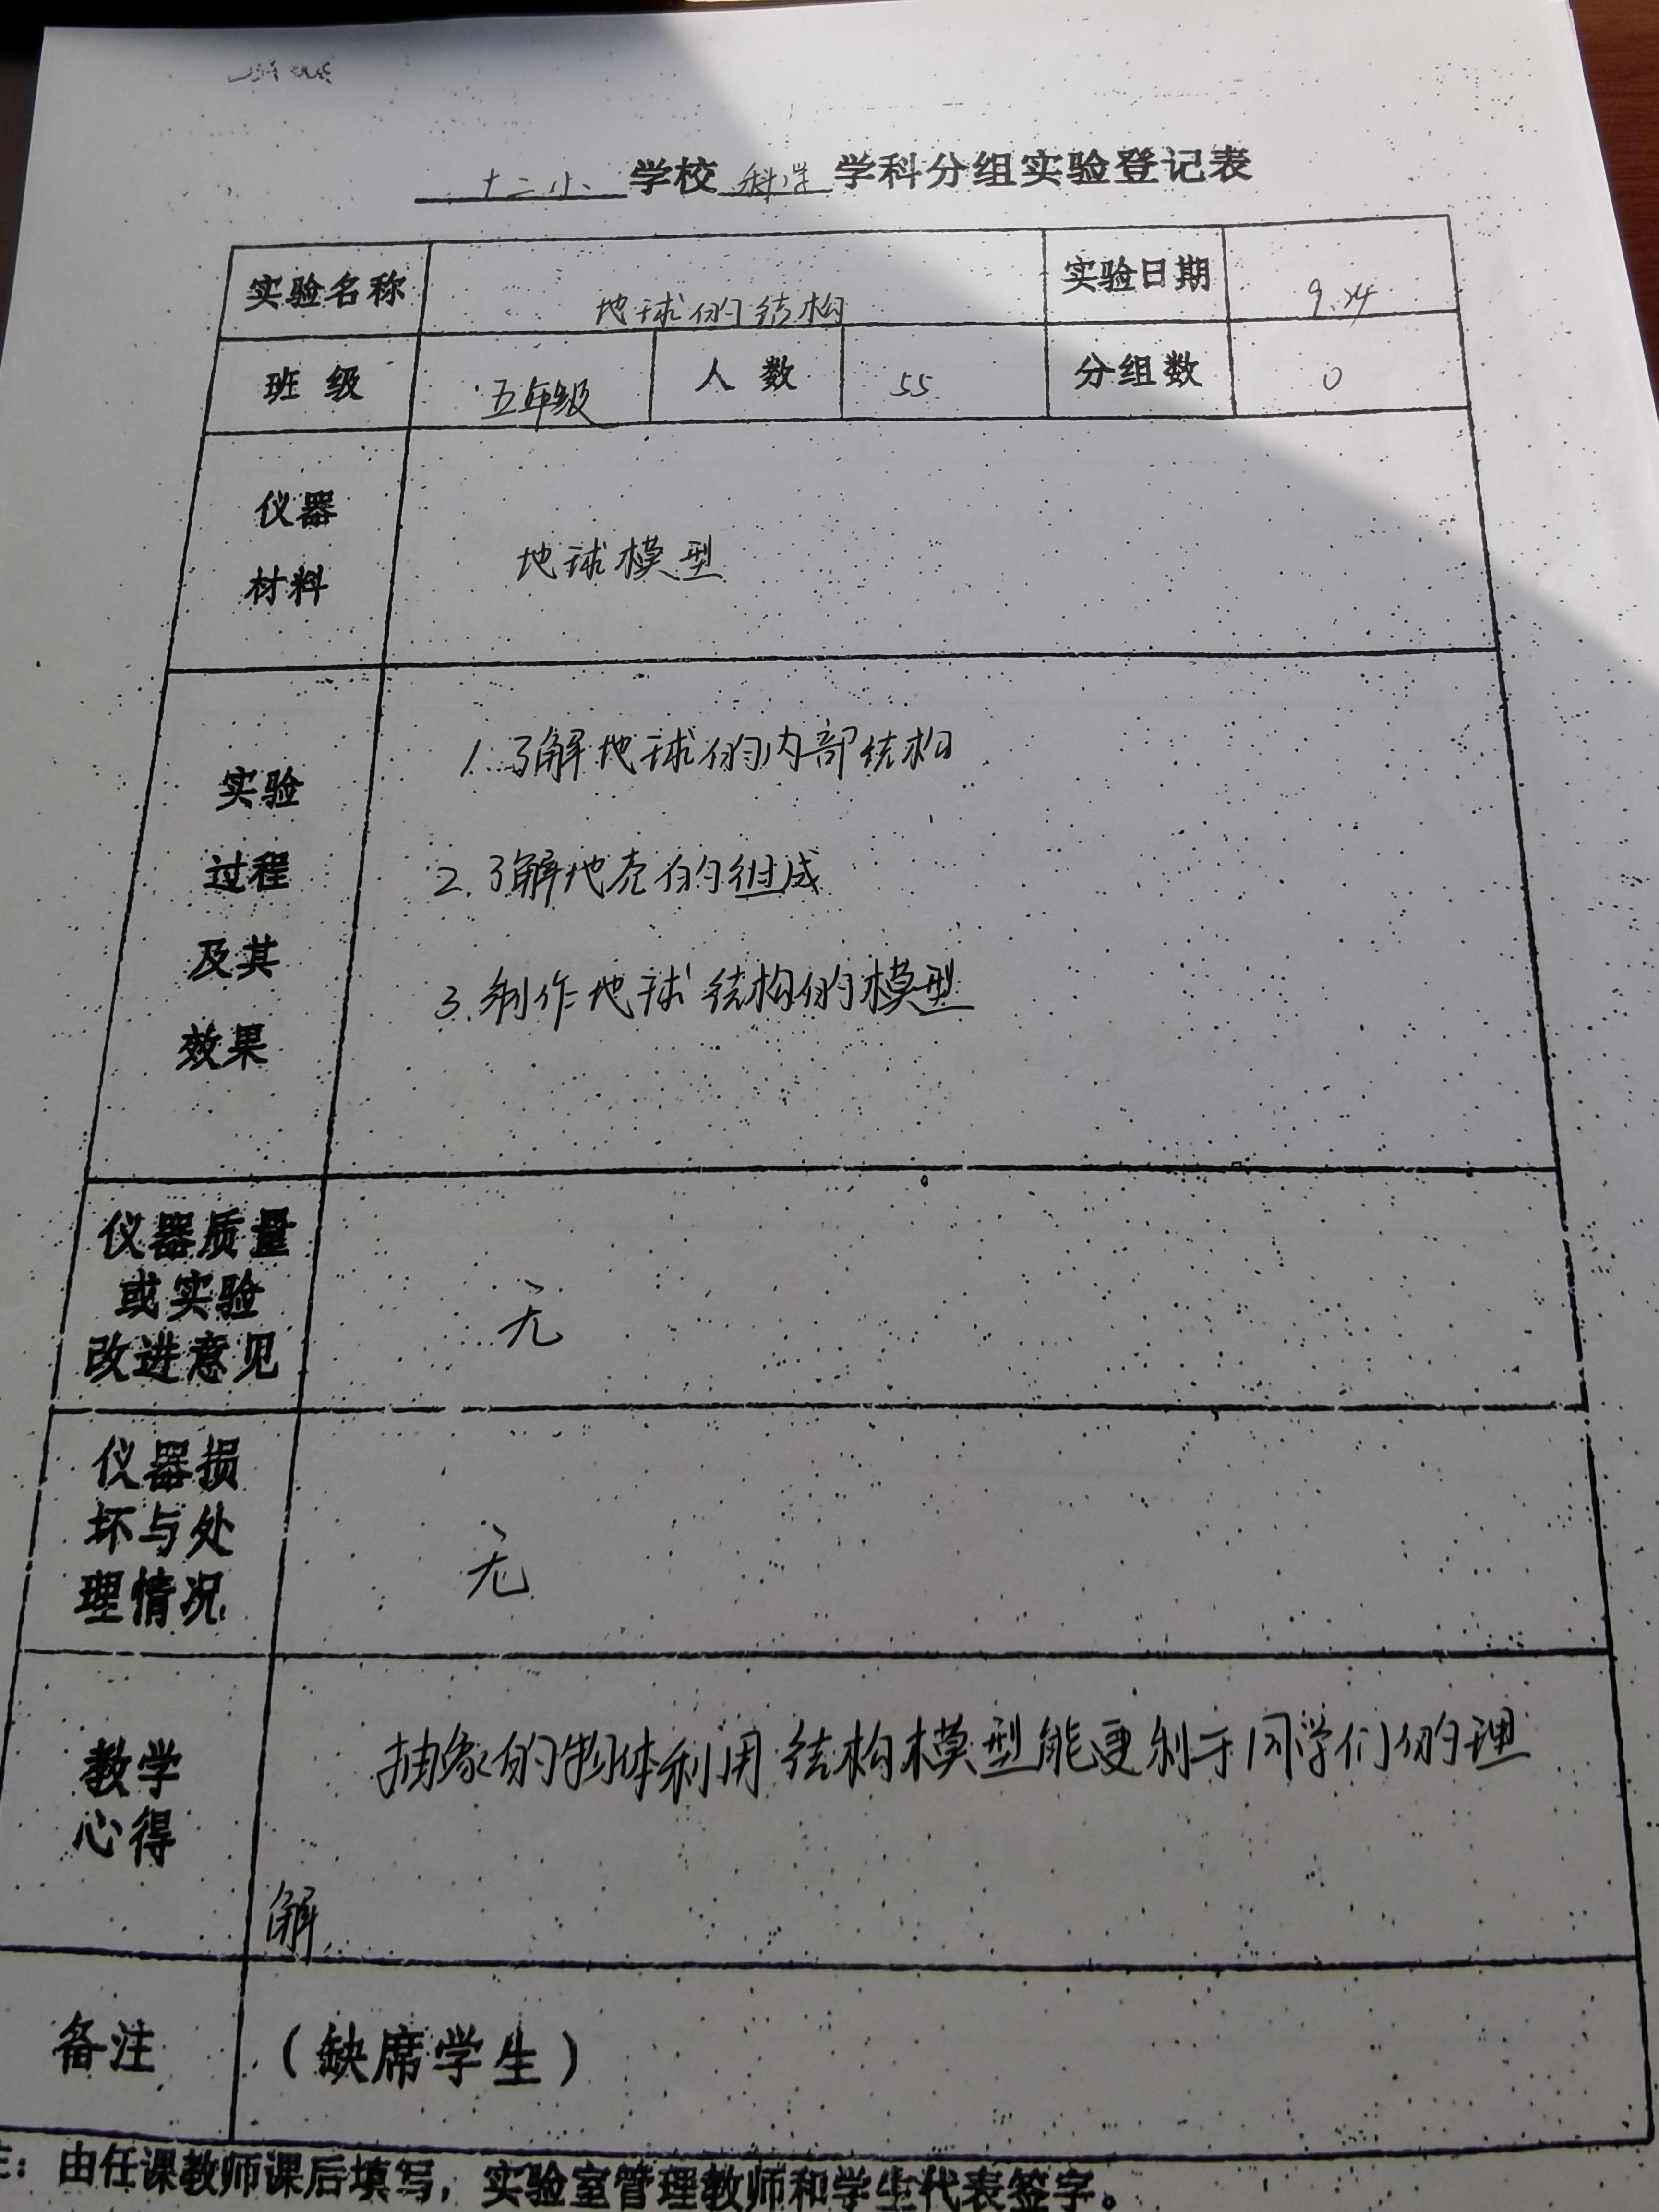 十二小 学校 科学 学科分组实验登记表
实验名称 地球的结构 实验日期 9.24
班级 五年级 人数 55 分组数 0
仪器
材料
地球模型
实验
过程
及其
效果
1.了解地球的内部结构
2.了解地壳的组成
3.制作地球结构的模型
仪器质量
或实验
改进意见
无
仪器损
坏与处
理情况
无
教学
心得
抽象的物体利用结构模型能更利于同学们的理
解
备注 (缺席学生)
注：由任课教师课后填写，实验室管理教师和学生代表签字。